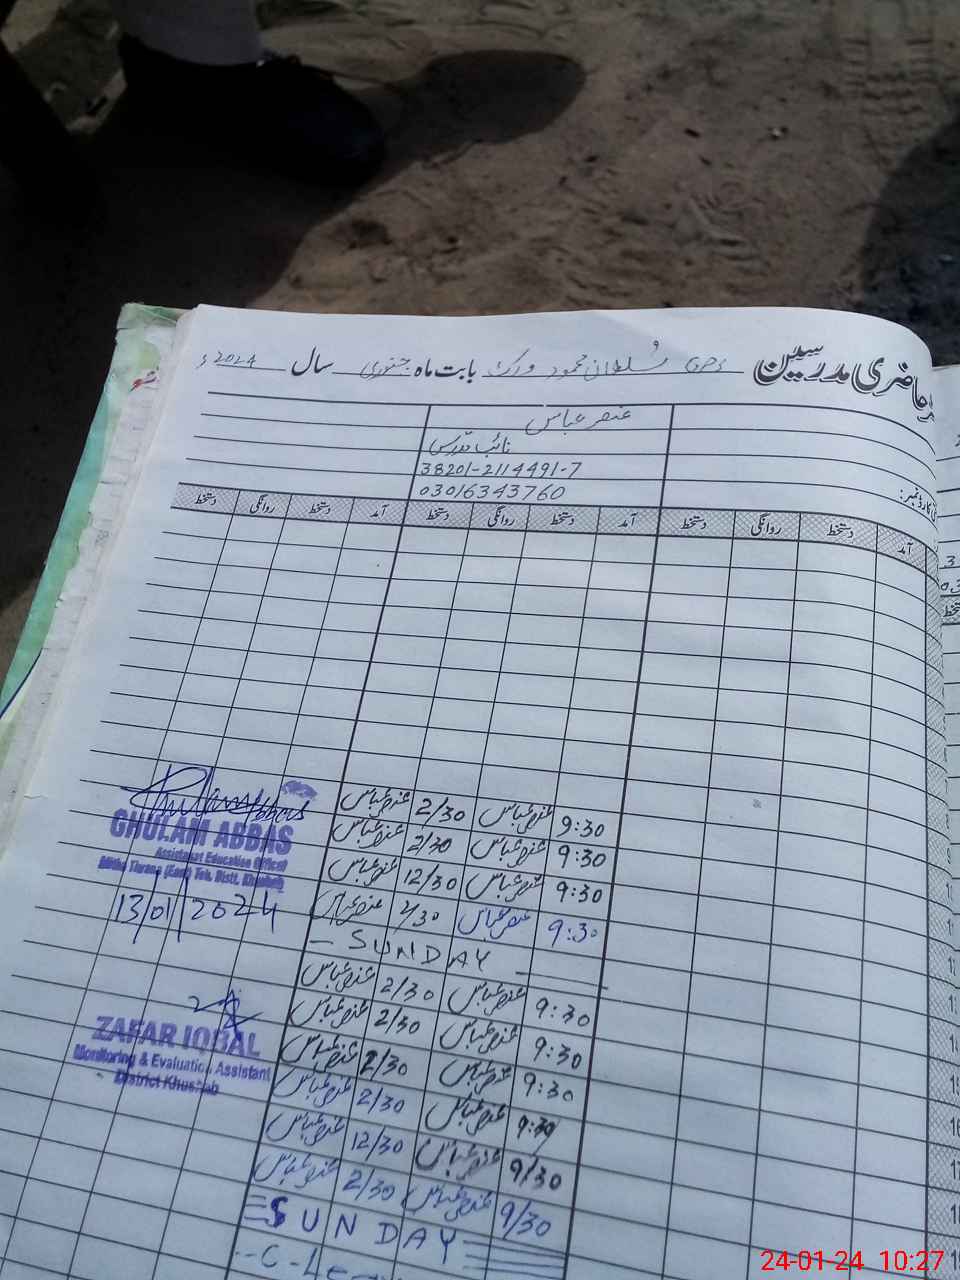 حاضری مدرسین GPS سلطان محمود والا بابت ماہ جنوری سال 2024ء
عنصر عباس
نائب مدرس
38201-2114491-7
03016343760
آمد دستخط روانگی دستخط آمد دستخط روانگی دستخط آمد دستخط روانگی دستخط
9:30 عنصر عباس 2/30 عنصر عباس
9:30 عنصر عباس 2/30 عنصر عباس
9:30 عنصر عباس 12/30 عنصر عباس
9:30 عنصر عباس 2/30 عنصر عباس
SUNDAY
9:30 عنصر عباس 2/30 عنصر عباس
9:30 عنصر عباس 2/30 عنصر عباس
9:30 عنصر عباس 2/30 عنصر عباس
9:30 عنصر عباس 2/30 عنصر عباس
9/30 عنصر عباس 12/30 عنصر عباس
9/30 عنصر عباس 2/30 عنصر عباس
SUNDAY
Ghulam Abbas
GHULAM ABBAS
Assistant Education Officer
Mitha Tiwana (East) Teh. Distt. Khushab
13/01/2024
ZAFAR IQBAL
Monitoring & Evaluation Assistant
District Khushab
24-01-24 10:27